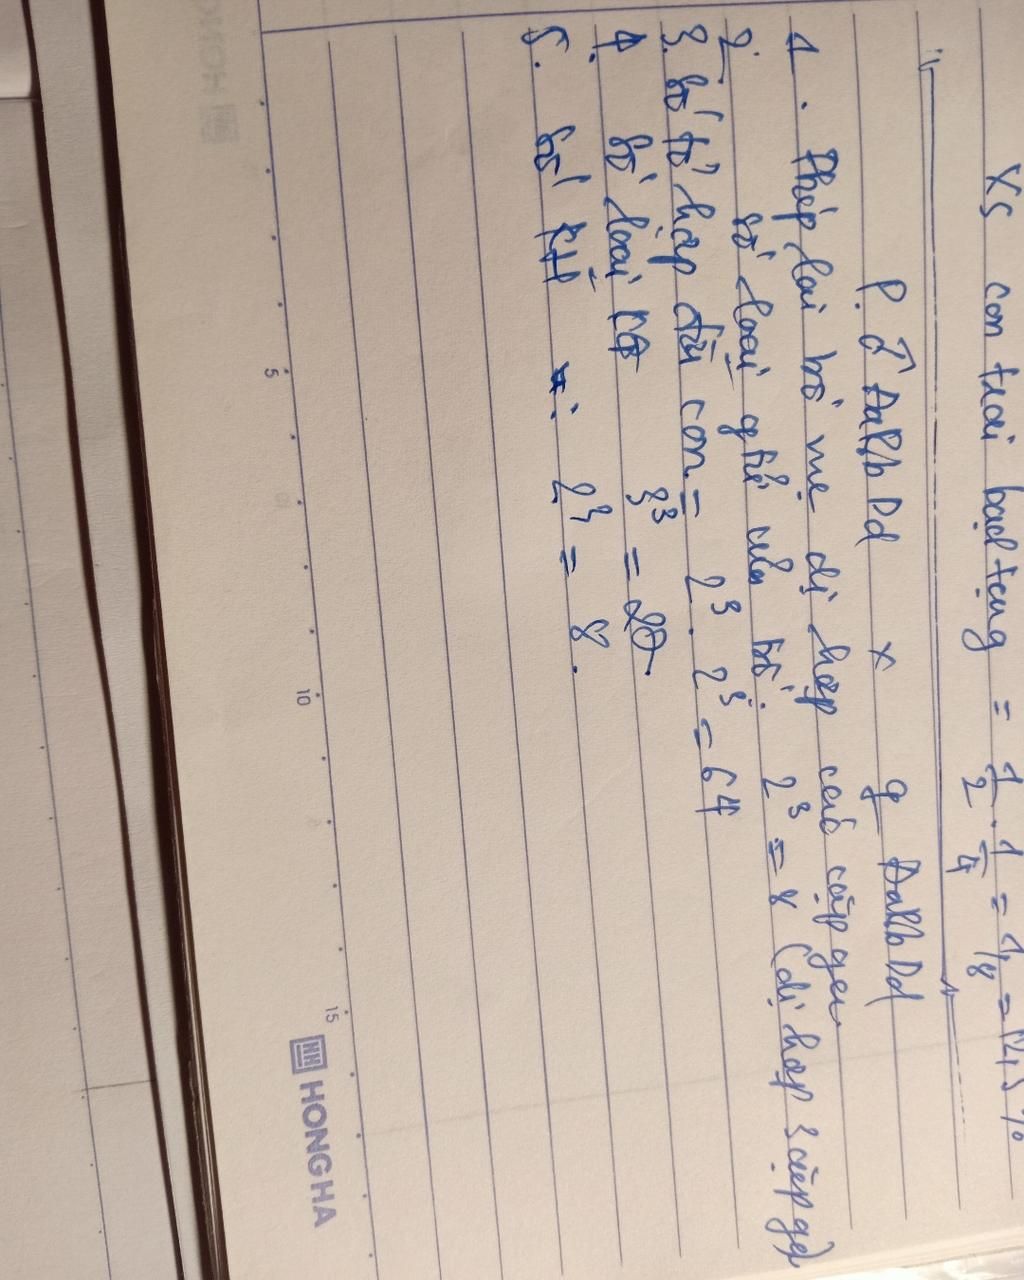 XS con trai bạch tạng = 1/2 . 1/4 = 1/8 = 12,5 %
P. ♂ AaBbDd x ♀ AaBbDd
1. Phép lai bố mẹ dị hợp các cặp gen
2. số loại gtử của bố: 2³ = 8 (dị hợp 3 cặp ge)
3. số tổ hợp đời con = 2³ . 2³ = 64
4. số loại KG 3³ = 27.
5. số KH = 2³ = 8.
5
10
15
HONG HA